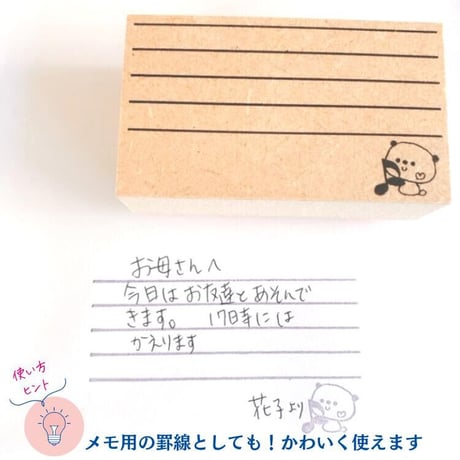 お母さんへ
今日はお友達とあそんで
きます。 17時には
かえります
花子より
使い方
ヒント
メモ用の罫線としても！かわいく使えます